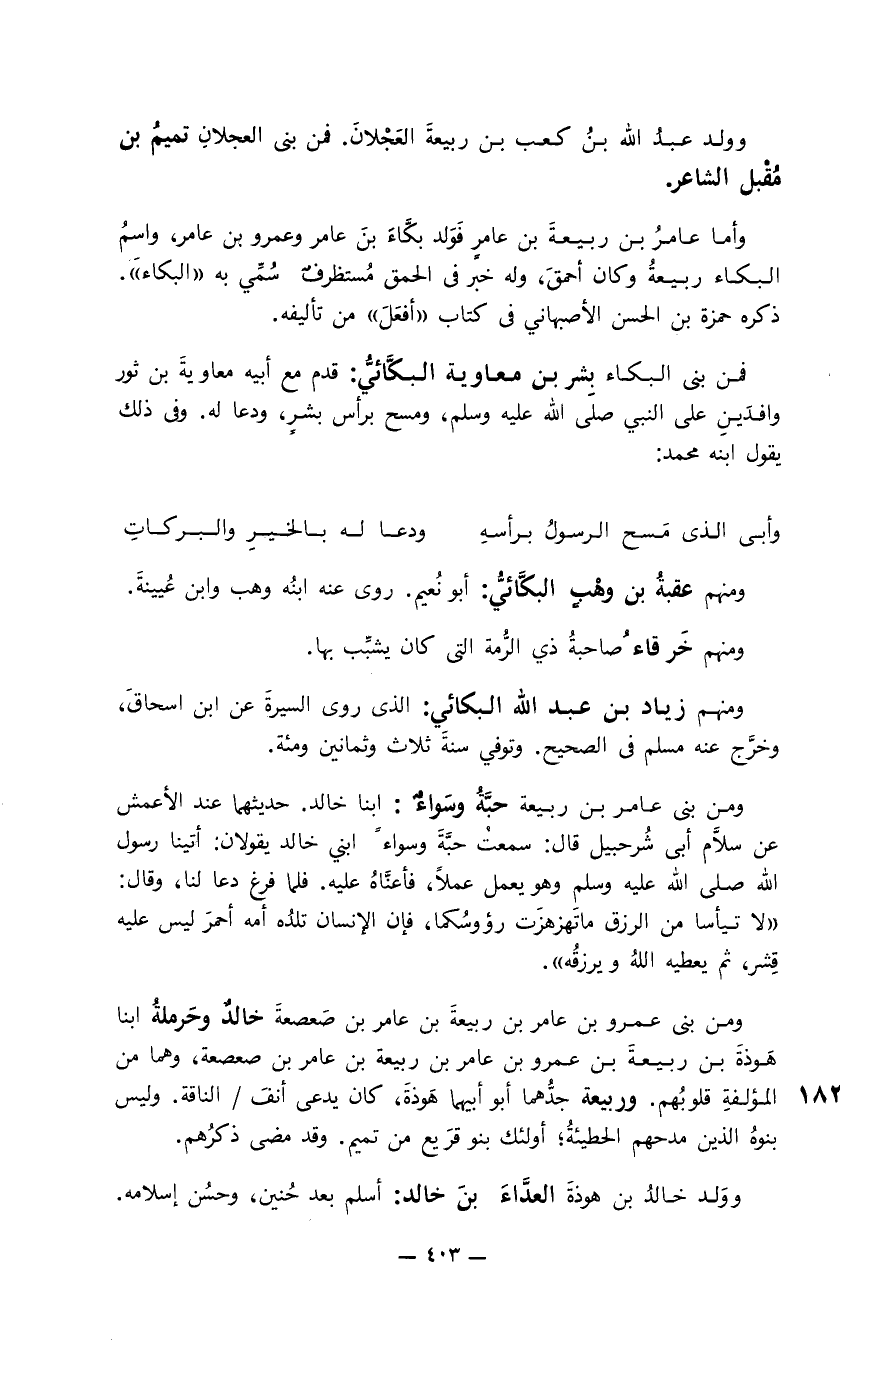 وولد عبدُ الله بنُ كعب بن ربيعةَ العَجْلانَ. فمن بنى العجلانِ تميمُ بن
مُقْبل الشاعر.
وأما عامرُ بن ربيعةَ بن عامرٍ فَوَلد بكَّاءَ بنَ عامر وعمرو بن عامر، واسمُ
البكاء ربيعةُ وكان أحمقَ، وله خبرٌ فى الحمق مُستظرفٌ سُمِّي به «البكاءَ».
ذكره حمزة بن الحسن الأصبهاني فى كتاب «أفعَلَ» من تأليفه.
فمن بنى البكاء بِشر بن معاوية البكَّائيُّ: قدم مع أبيه معاويةَ بن ثور
وافدَينِ على النبي صلى الله عليه وسلم، ومسح برأس بشرٍ، ودعا له. وفى ذلك
يقول ابنه محمد:
وأبى الذى مَسح الرسولُ برأسهِ ودعا له بالخيرِ والبركاتِ
ومنهم عقبةُ بن وهْبٍ البكَّائيُّ: أبو نُعيم. روى عنه ابنُه وهب وابن عُيينةَ.
ومنهم خَرقاءُ صاحبةُ ذي الرُّمة التى كان يشبِّب بها.
ومنهم زياد بن عبد الله البكائي: الذى روى السيرةَ عن ابن اسحاقَ،
وخرَّج عنه مسلم فى الصحيح. وتوفي سنةَ ثلاث وثمانين ومئة.
ومن بنى عامر بن ربيعة حبَّةُ وسَواءٌ: ابنا خالد. حديثهما عند الأعمش
عن سلاَّم أبى شُرحبيل قال: سمعتُ حبَّةَ وسواءً ابني خالد يقولان: أتينا رسول
الله صلى الله عليه وسلم وهو يعمل عملاً، فأعنَّاهُ عليه. فلما فرغ دعا لنا، وقال:
«لا تيأسا من الرزق ماتَهزهزَت رؤوسُكما، فإن الإنسان تلدُه أمه أحمرَ ليس عليه
قِشر، ثم يعطيه اللهُ ويرزقُه».
ومن بنى عمرو بن عامر بن ربيعةَ بن عامر بن صَعصعةَ خالدٌ وحَرملةُ ابنا
هَوذةَ بن ربيعةَ بن عمرو بن عامر بن ربيعة بن عامر بن صعصعة، وهما من
المؤلفةِ قلوبُهم. وربيعة جدُّهما أبو أبيهما هَوذةَ، كان يدعى أنفَ / الناقة. وليس ١٨٢
بنوهُ الذين مدحهم الحطيئةُ؛ أولئك بنو قريع من تميم. وقد مضى ذكرُهم.
ووَلد خالدُ بن هوذةَ العدَّاءَ بنَ خالد: أسلم بعد حُنين، وحسُن إسلامه.
— ٤٠٣ —